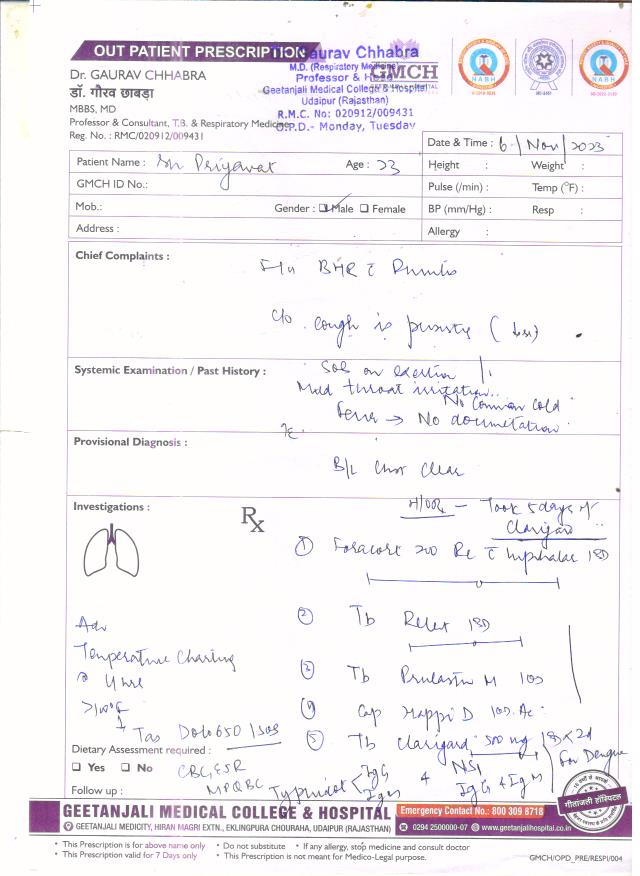 OUT PATIENT PRESCRIPTION
Dr. Gaurav Chhabra
M.D. (Respiratory Medicine)
Professor & Head
Geetanjali Medical College & Hospital
Udaipur (Rajasthan)
R.M.C. No: 020912/009431
O.P.D.- Monday, Tuesday
GMCH
NABH
NABH
Dr. GAURAV CHHABRA
डॉ. गौरव छाबड़ा
MBBS, MD
Professor & Consultant, T.B. & Respiratory Medicine
Reg. No. : RMC/020912/009431
Date & Time : 6/Nov/2023
Patient Name : Sh Priyavat Age : 23
Height : Weight :
GMCH ID No.:
Pulse (/min) : Temp (°F) :
Mob.: Gender : Male Female
BP (mm/Hg) : Resp :
Address :
Allergy :
Chief Complaints :
F/u BHR c Rhinitis
c/o cough is
Systemic Examination / Past History :
SOB on exertion
Mild throat irritation..
No Common cold
Fever → No documentation
Provisional Diagnosis :
B/L Chest Clear
Investigations :
Rx
Took 5 days of
Clarigard
① Foracort 200 Re c 
② Tb
③ Tb M 10D
④ Cap Happi D 10D. Ac
⑤ Tb Clarigard 500 mg
Adv
Temperature Charting
@ 4 hrs
>100°F
↓
Tab Dolo 650 1 SOS
Dietary Assessment required :
Yes No
CBC, ESR
MPQBC
Typhidot IgG IgM
NS1
IgG & IgM
For Dengue
Follow up :
गीतांजली हॉस्पिटल
GEETANJALI MEDICAL COLLEGE & HOSPITAL
Emergency Contact No.: 800 309 8718
GEETANJALI MEDICITY, HIRAN MAGRI EXTN., EKLINGPURA CHOURAHA, UDAIPUR (RAJASTHAN)
0294 2500000-07 www.geetanjalihospital.co.in
• This Prescription is for above name only • Do not substitute • If any allergy, stop medicine and consult doctor
• This Prescription valid for 7 Days only • This Prescription is not meant for Medico-Legal purpose.
GMCH/OPD_PRE/RESPI/004